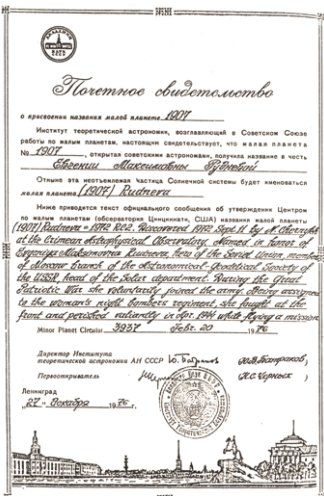 Почетное свидетельство
о присвоении названия малой планете 1907
Институт теоретической астрономии, возглавляющий в Советском Союзе
работы по малым планетам, настоящим свидетельствует, что малая планета
№ 1907, открытая советскими астрономами, получила название в честь
Евгении Максимовны Рудневой
Отныне эта неотъемлемая частица Солнечной системы будет именоваться
малая планета (1907) Rudneva
Ниже приводится текст официального сообщения об утверждении Центром
по малым планетам (обсерватория Цинциннати, США) названия малой планеты
(1907) Rudneva = 1972 RC2. Discovered 1972 Sept. 11 by N. Chernykh
at the Crimean Astrophysical Observatory. Named in honor of
Evgeniya Maksimovna Rudneva, hero of the Soviet Union, member
of Moscow Branch of the Astronomical-Geodetical Society of
the USSR, head of the Solar department. During the Great
Patriotic War she voluntarily joined the army. Being assigned
to the woman's night bombers regiment she fought at the
front and perished valiantly in Apr. 1944 while flying a mission
Minor Planet Circular 3937 Febr. 20 1976
Директор Института
теоретической астрономии АН СССР
Первооткрыватель Н.С. Черных
Ленинград
"27" декабря 1976